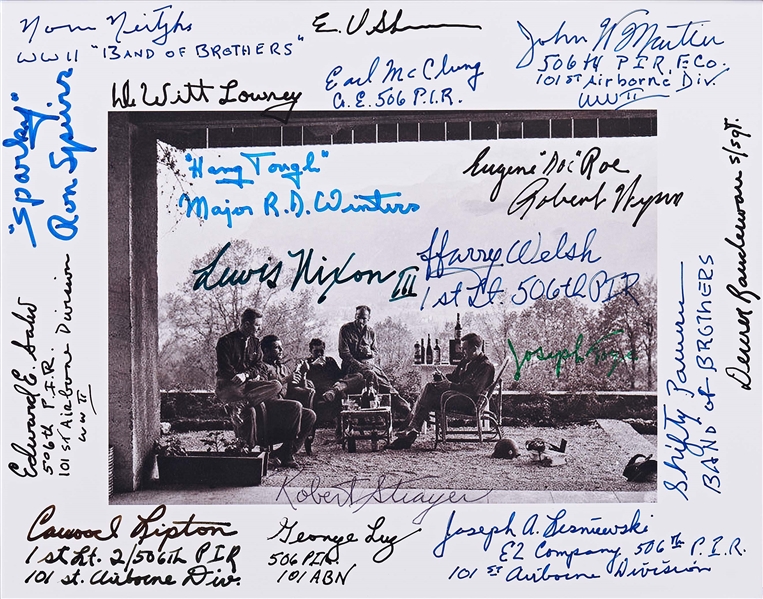 WWII "BAND OF BROTHERS"
John W Martin
506th P.I.R. F Co.
101st Airborne Div.
WW II
Earl McClung
506 P.I.R.
De Witt Lowrey
"Sparky"
Ron Speirs
"Hang Tough"
Major R.D. Winters
Eugene "Doc" Roe
Robert Wynn
Lewis Nixon III
Harry Welsh
1st Lt. 506th PIR
Joseph
Edward E.
506th P.I.R.
101st Airborne Division
WW II
Shifty
BAND of BROTHERS
S/Sgt.
Robert Strayer
Carwood Lipton
1st Lt. 2/506th PIR
101 st. Airborne Div.
George Luz
506 PIR.
101 ABN
Joseph A. Lesniewski
E2 Company 506th P.I.R.
101st Airborne Division